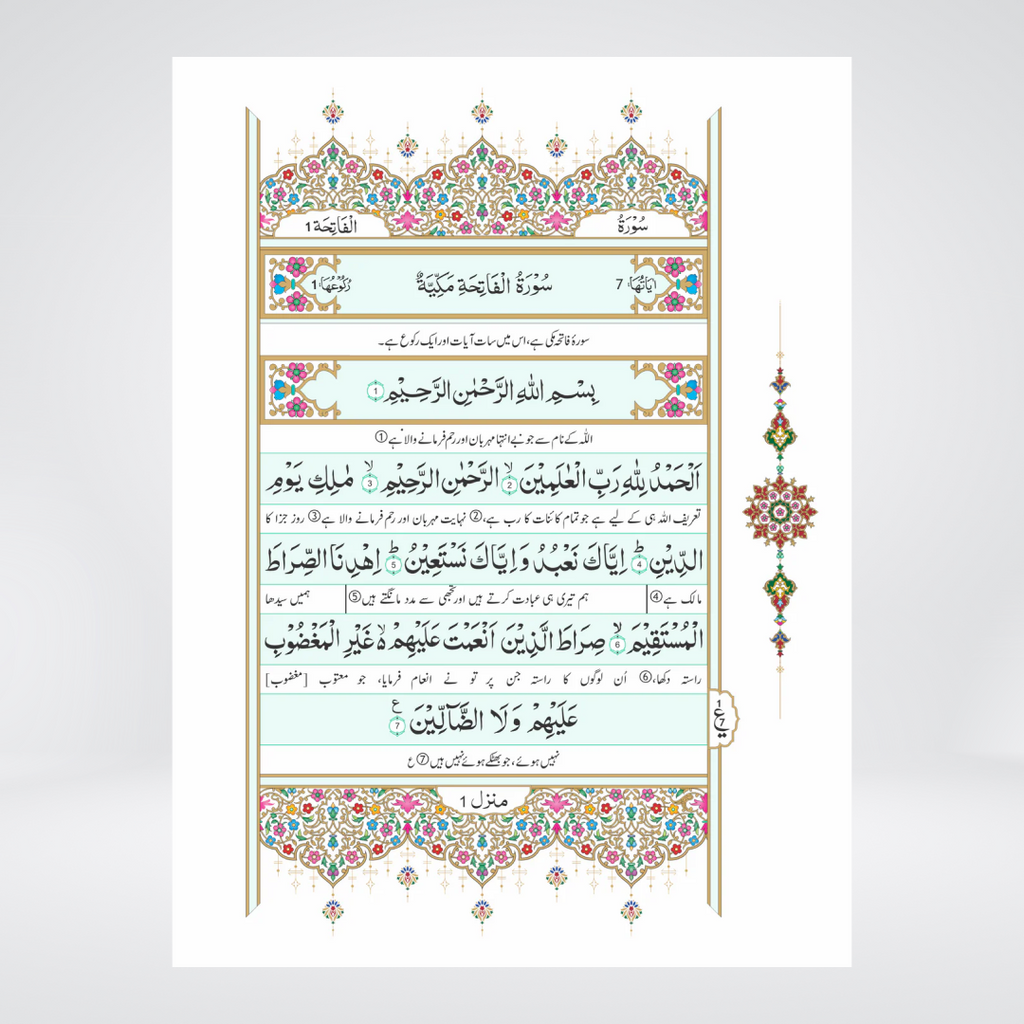 سُوْرَةُ الْفَاتِحَة 1
اٰيَاتُهَا: 7 سُوْرَةُ الْفَاتِحَةِ مَكِّيَّةٌ رُكُوْعُهَا: 1
سورۂ فاتحہ مکی ہے، اس میں سات آیات اور ایک رکوع ہے۔
بِسْمِ اللّٰهِ الرَّحْمٰنِ الرَّحِيْمِ ①
اللّٰہ کے نام سے جو بے انتہا مہربان اور رحم فرمانے والا ہے ①
اَلْحَمْدُ لِلّٰهِ رَبِّ الْعٰلَمِيْنَ ۙ② الرَّحْمٰنِ الرَّحِيْمِ ۙ③ مٰلِكِ يَوْمِ
تعریف اللہ ہی کے لیے ہے جو تمام کائنات کا رب ہے، ② نہایت مہربان اور رحم فرمانے والا ہے ③ روز جزا کا
الدِّيْنِ ؕ④ اِيَّاكَ نَعْبُدُ وَاِيَّاكَ نَسْتَعِيْنُ ؕ⑤ اِهْدِنَا الصِّرَاطَ
مالک ہے ④ ہم تیری ہی عبادت کرتے ہیں اور تجھی سے مدد مانگتے ہیں ⑤ ہمیں سیدھا
الْمُسْتَقِيْمَ ۙ⑥ صِرَاطَ الَّذِيْنَ اَنْعَمْتَ عَلَيْهِمْ ۙ۬ غَيْرِ الْمَغْضُوْبِ
راستہ دکھا، ⑥ اُن لوگوں کا راستہ جن پر تو نے انعام فرمایا، جو معتوب [مغضوب]
عَلَيْهِمْ وَلَا الضَّآلِّيْنَ ⑦ ع
ع 1 7
نہیں ہوئے، جو بھٹکے ہوئے نہیں ہیں ⑦ ع
منزل 1